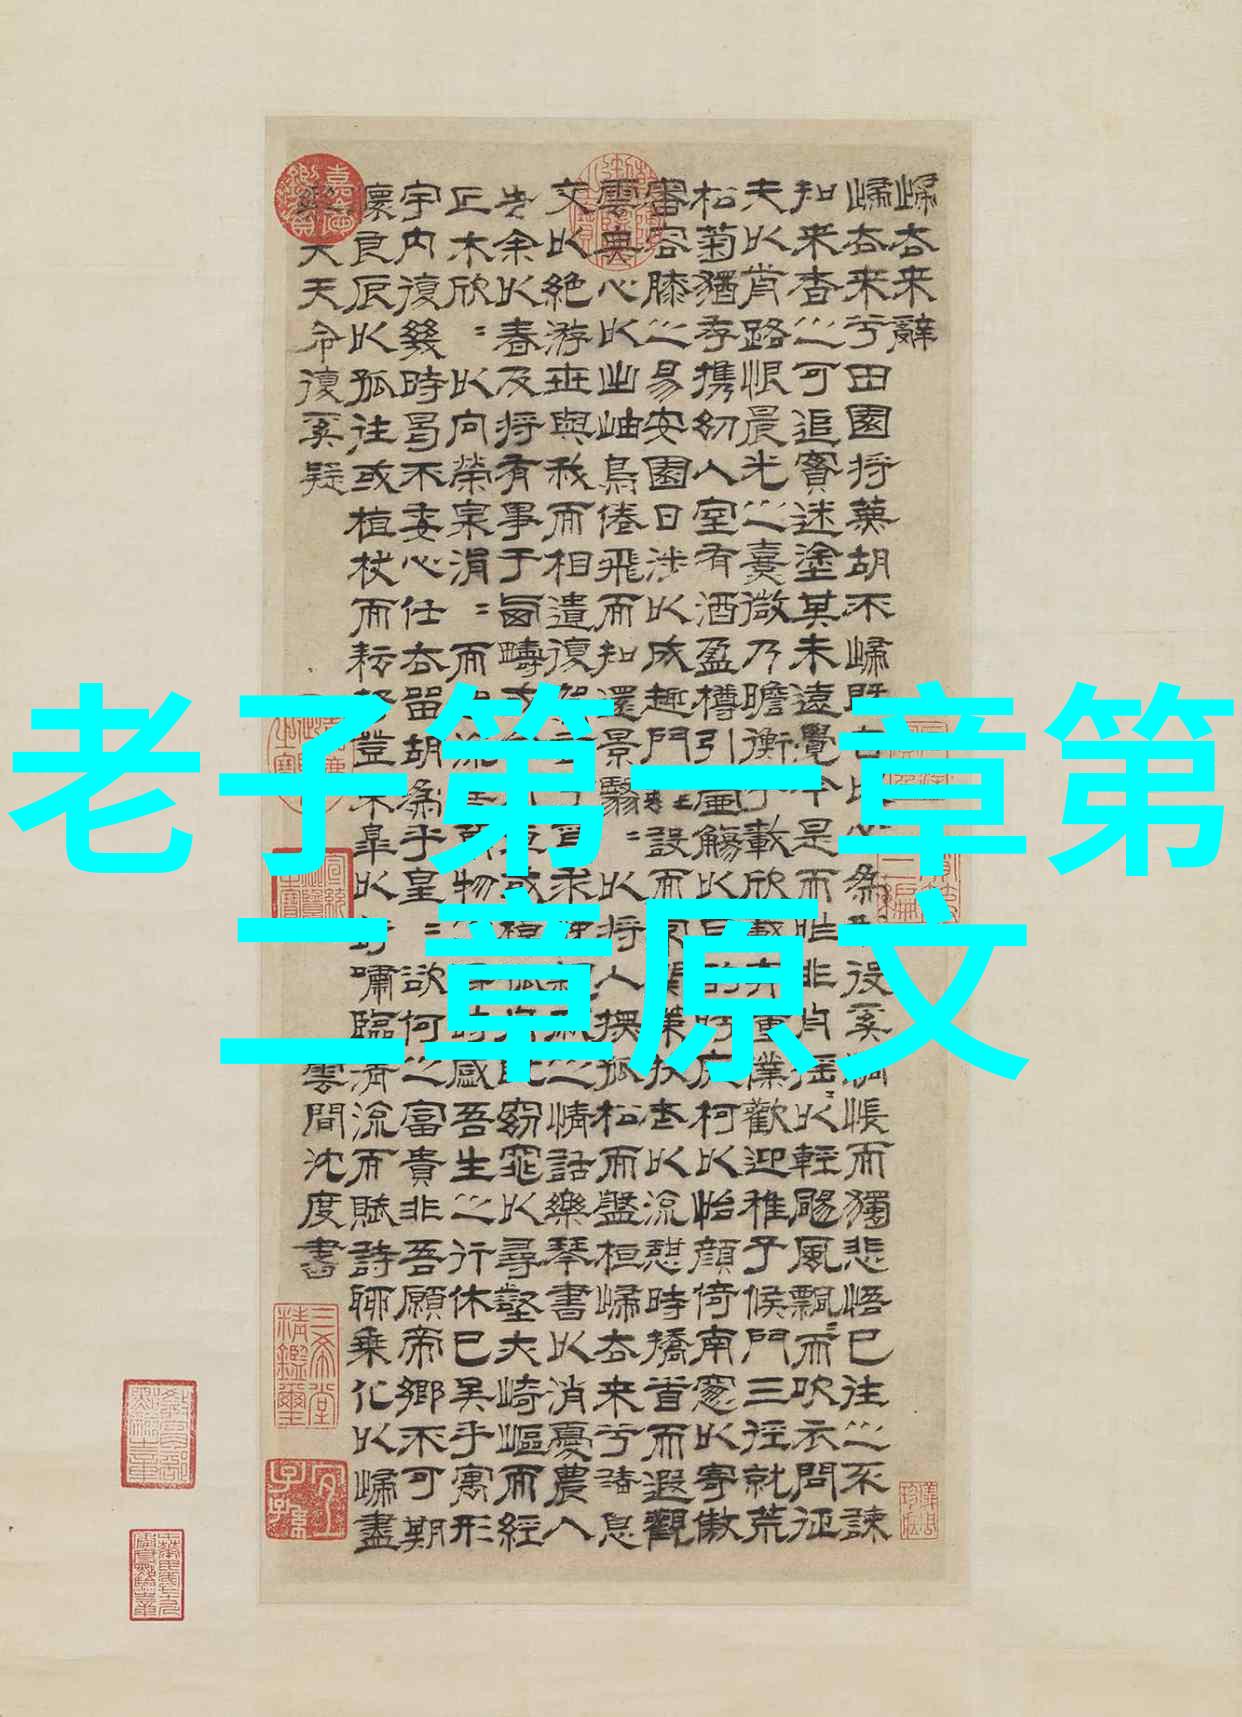 老子第一章第
二章原文
歸去來辭
歸去來兮田園將蕪胡不歸既自以心為形役奚惆悵而獨悲悟已往之不諫
知來者之可追實迷塗其未遠覺今是而昨非舟搖〻以輕颺風飄〻而吹衣問征
夫以前路恨晨光之熹微乃瞻衡宇載欣載奔僮僕歡迎稚子候門三徑就荒
松菊猶存攜幼入室有酒盈樽引壺觴以自酌眄庭柯以怡顏倚南窗以寄傲
審容膝之易安園日涉以成趣門雖設而常關策扶老以流憩時矯首而遐觀
雲無心以出岫鳥倦飛而知還景翳〻以將入撫孤松而盤桓歸去來兮請息
交以絕游世與我而相遺復駕言兮焉求悅親戚之情話樂琴書以消憂農人
告余以春及將有事于西疇或命巾車或棹孤舟既窈窕以尋壑亦崎嶇而經
丘木欣〻以向榮泉涓〻而始流羨萬物之得時感吾生之行休已矣乎寓形
宇內復幾時曷不委心任去留胡為乎皇〻欲何之富貴非吾願帝鄉不可期
懷良辰以孤往或植杖而耘耔登東皋以舒嘯臨清流而賦詩聊乘化以歸盡
樂夫天命復奚疑
雲間沈度書
三希堂精鑑璽
宜子孫